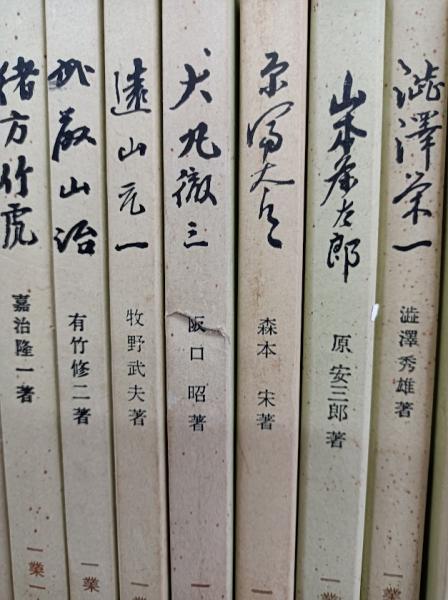 澁澤栄一
澁澤秀雄著
一業
山本条太郎
原 安三郎著
一業
原富太郎
森本 宋著
一
犬丸徹三
阪口 昭著
一
遠山元一
牧野武夫著
一業
武藤山治
有竹修二著
一業
緒方竹虎
嘉治隆一著
一業一